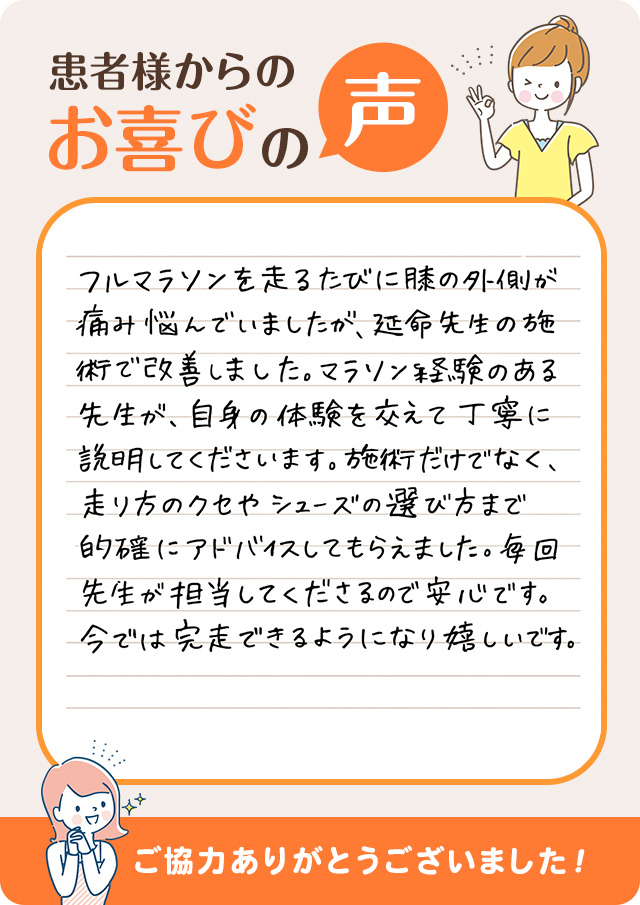 患者様からの
お喜びの声
フルマラソンを走るたびに膝の外側が
痛み悩んでいましたが、延命先生の施
術で改善しました。マラソン経験のある
先生が、自身の体験を交えて丁寧に
説明してくださいます。施術だけでなく、
走り方のクセやシューズの選び方まで
的確にアドバイスしてもらえました。毎回
先生が担当してくださるので安心です。
今では完走できるようになり嬉しいです。
ご協力ありがとうございました!